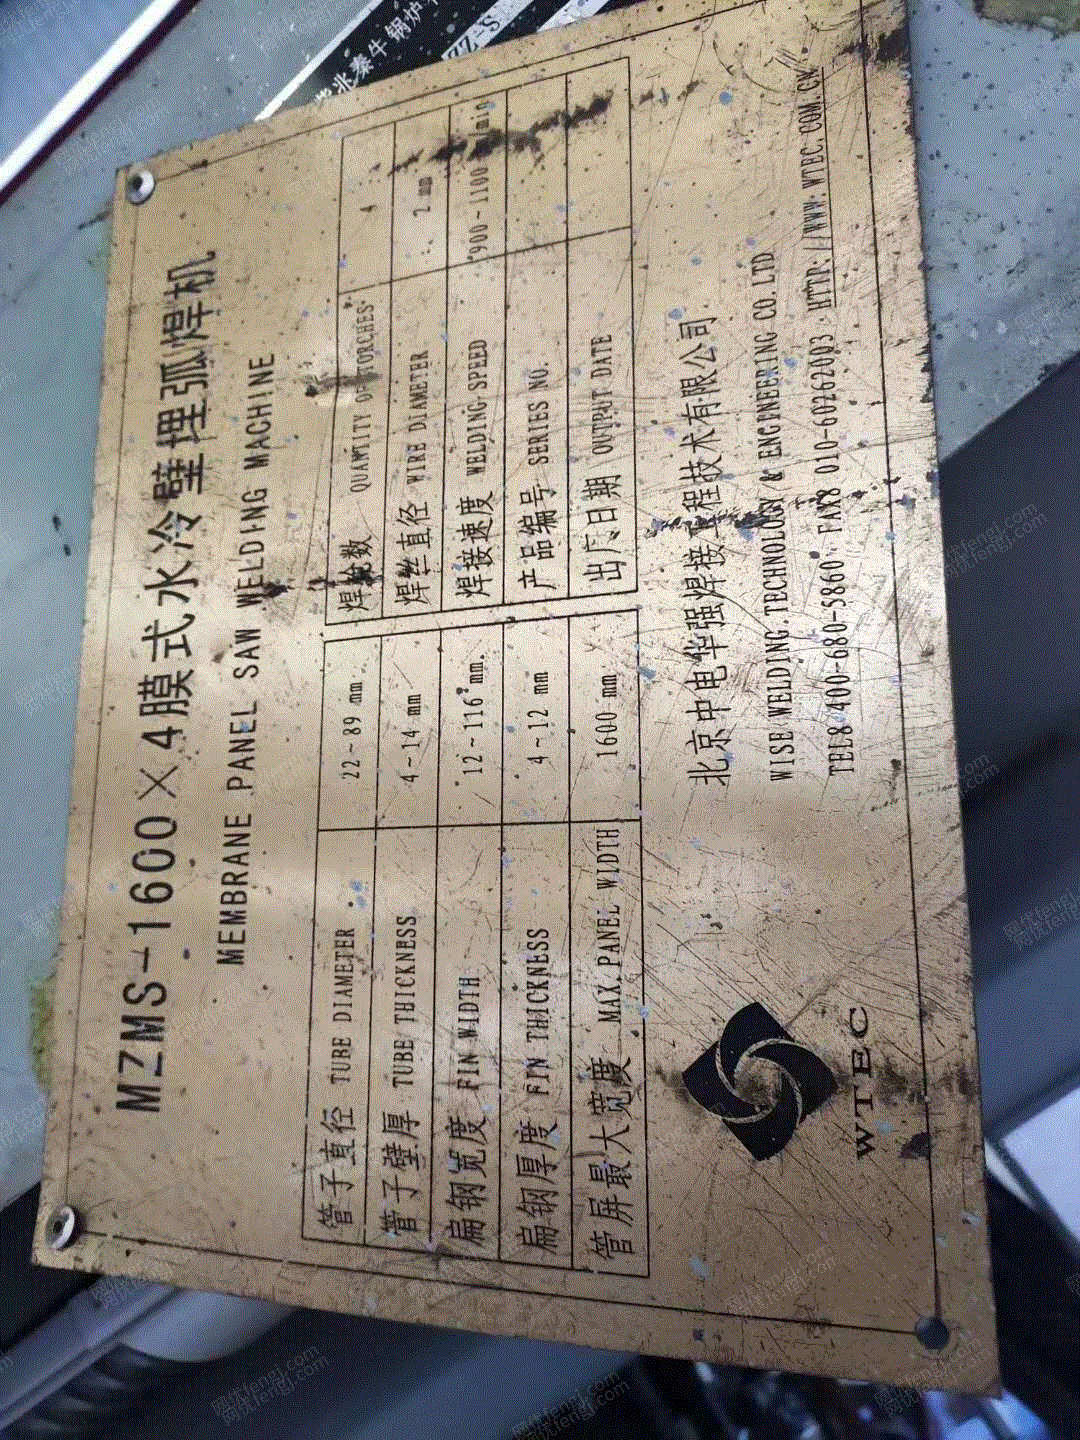 MZMS-1600×4膜式水冷壁埋弧焊机
MEMBRANE PANEL SAW WELDING MACHINE
管子直径 TUBE DIAMETER 22~89 mm
管子壁厚 TUBE THICKNESS 4~14 mm
扁钢宽度 FIN WIDTH 12~116 mm.
扁钢厚度 FIN THICKNESS 4~12 mm
管屏最大宽度 MAX.PANEL WIDTH 1600 mm
焊枪数 QUANTITY OF TORCHES 4
焊丝直径 WIRE DIAMETER 2 mm
焊接速度 WELDING SPEED 900~1100 /min
产品编号 SERIES NO.
出厂日期 OUTPUT DATE
北京中电华强焊接工程技术有限公司
WISE WELDING TECHNOLOGY & ENGINEERING CO.LTD
TEL8 400-680-5860, FAX8 010-6026203 HTTP://WWW.WTEC.COM.CN
WTEC
秦牛锅炉
ZZ-S